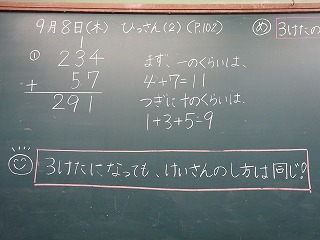 9月8日(木) ひっさん(2) (P.102)
め 3けたの
① 1
234
+ 57
291
まず、一のくらいは、
4+7=11
つぎに十のくらいは、
1+3+5=9
3けたになっても、けいさんのし方は同じ?